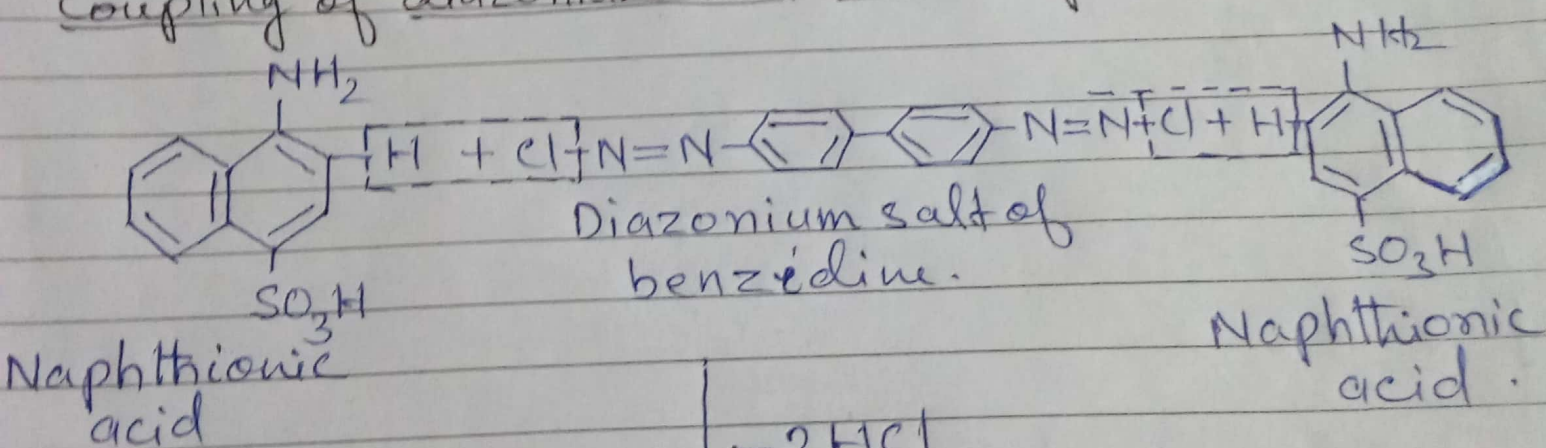 Coupling of
NH2 NH2
H + Cl N=N N=N Cl + H
Diazonium salt of
benzidine.
SO3H SO3H
Naphthionic Naphthionic
acid acid.
2HCl